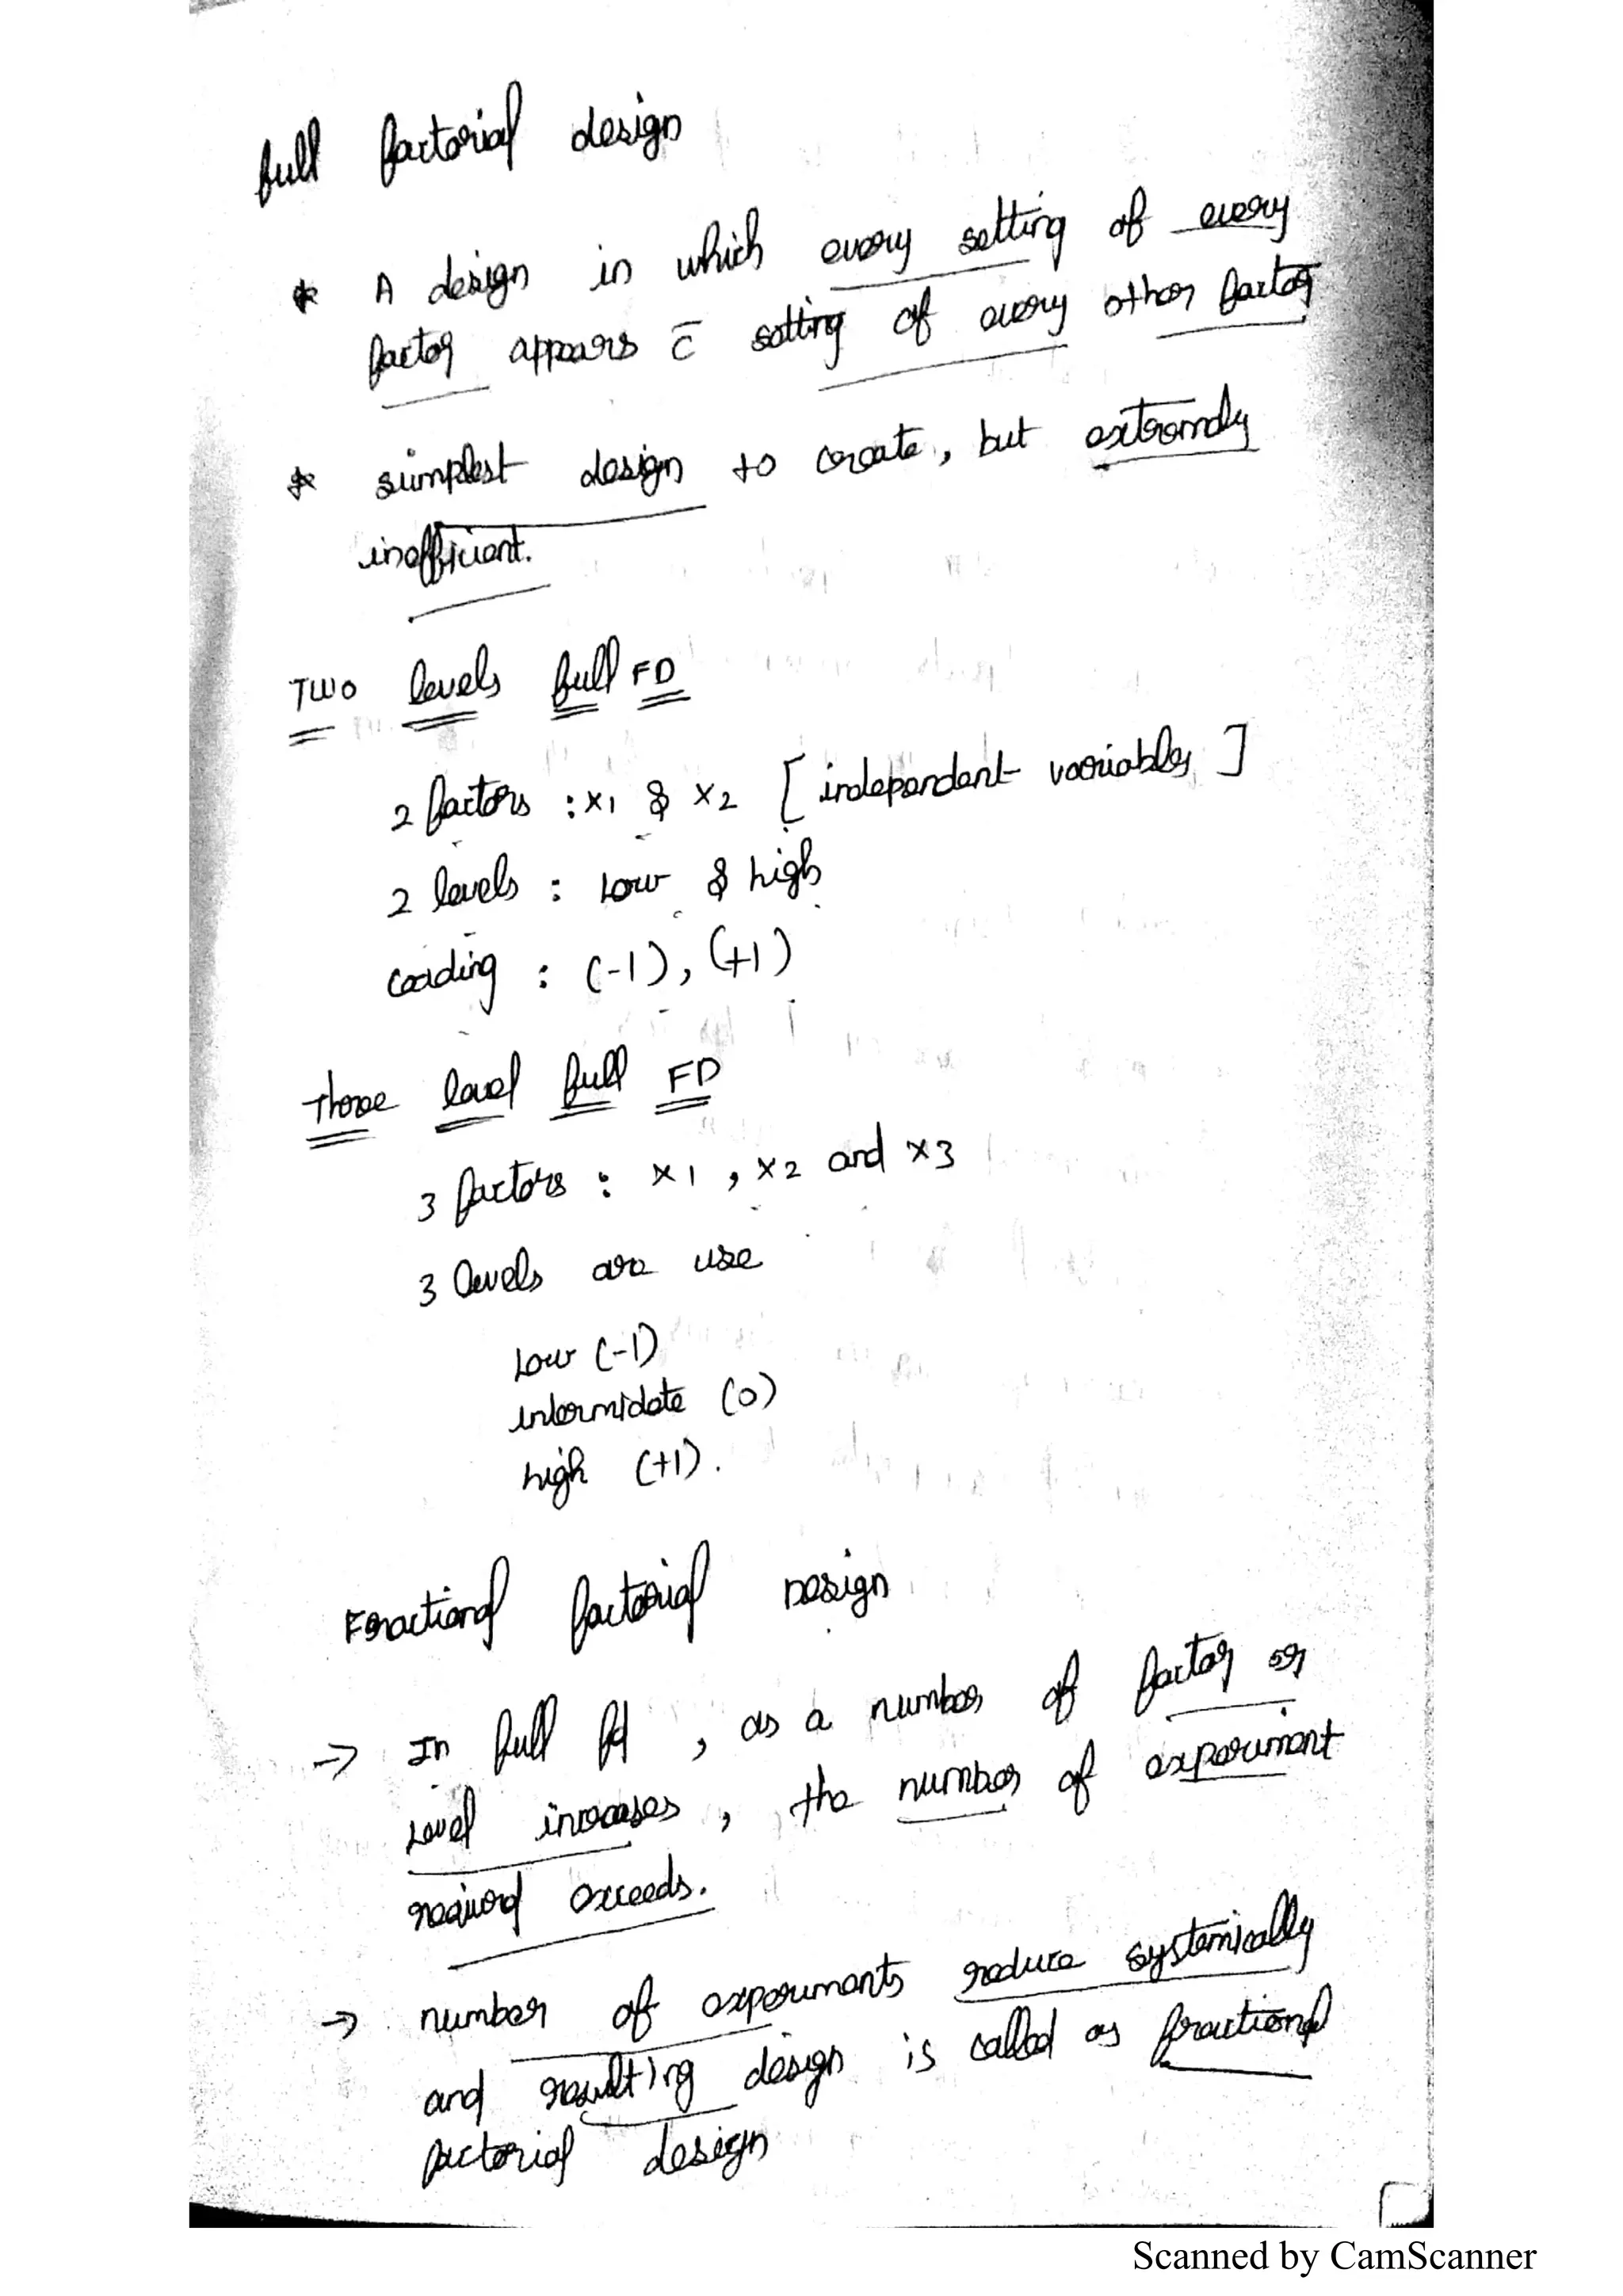 full factorial design
* A design in which every setting of every
factor appears c̄ setting of every other factor
* simplest design to create, but extremely
inefficient.
Two levels full FD
2 factors : x1 & x2 [independent variables]
2 levels : Low & high
coading : (-1), (+1)
Three level full FD
3 factors : x1, x2 and x3
3 levels are use
Low (-1)
intermidate (0)
high (+1).
Fractional factorial Design
→ In full fd, as a number of factor or
level increases, the number of experiment
required exceeds.
→ number of experiments reduce systemically
and resulting design is called as fractional
factorial design
Scanned by CamScanner